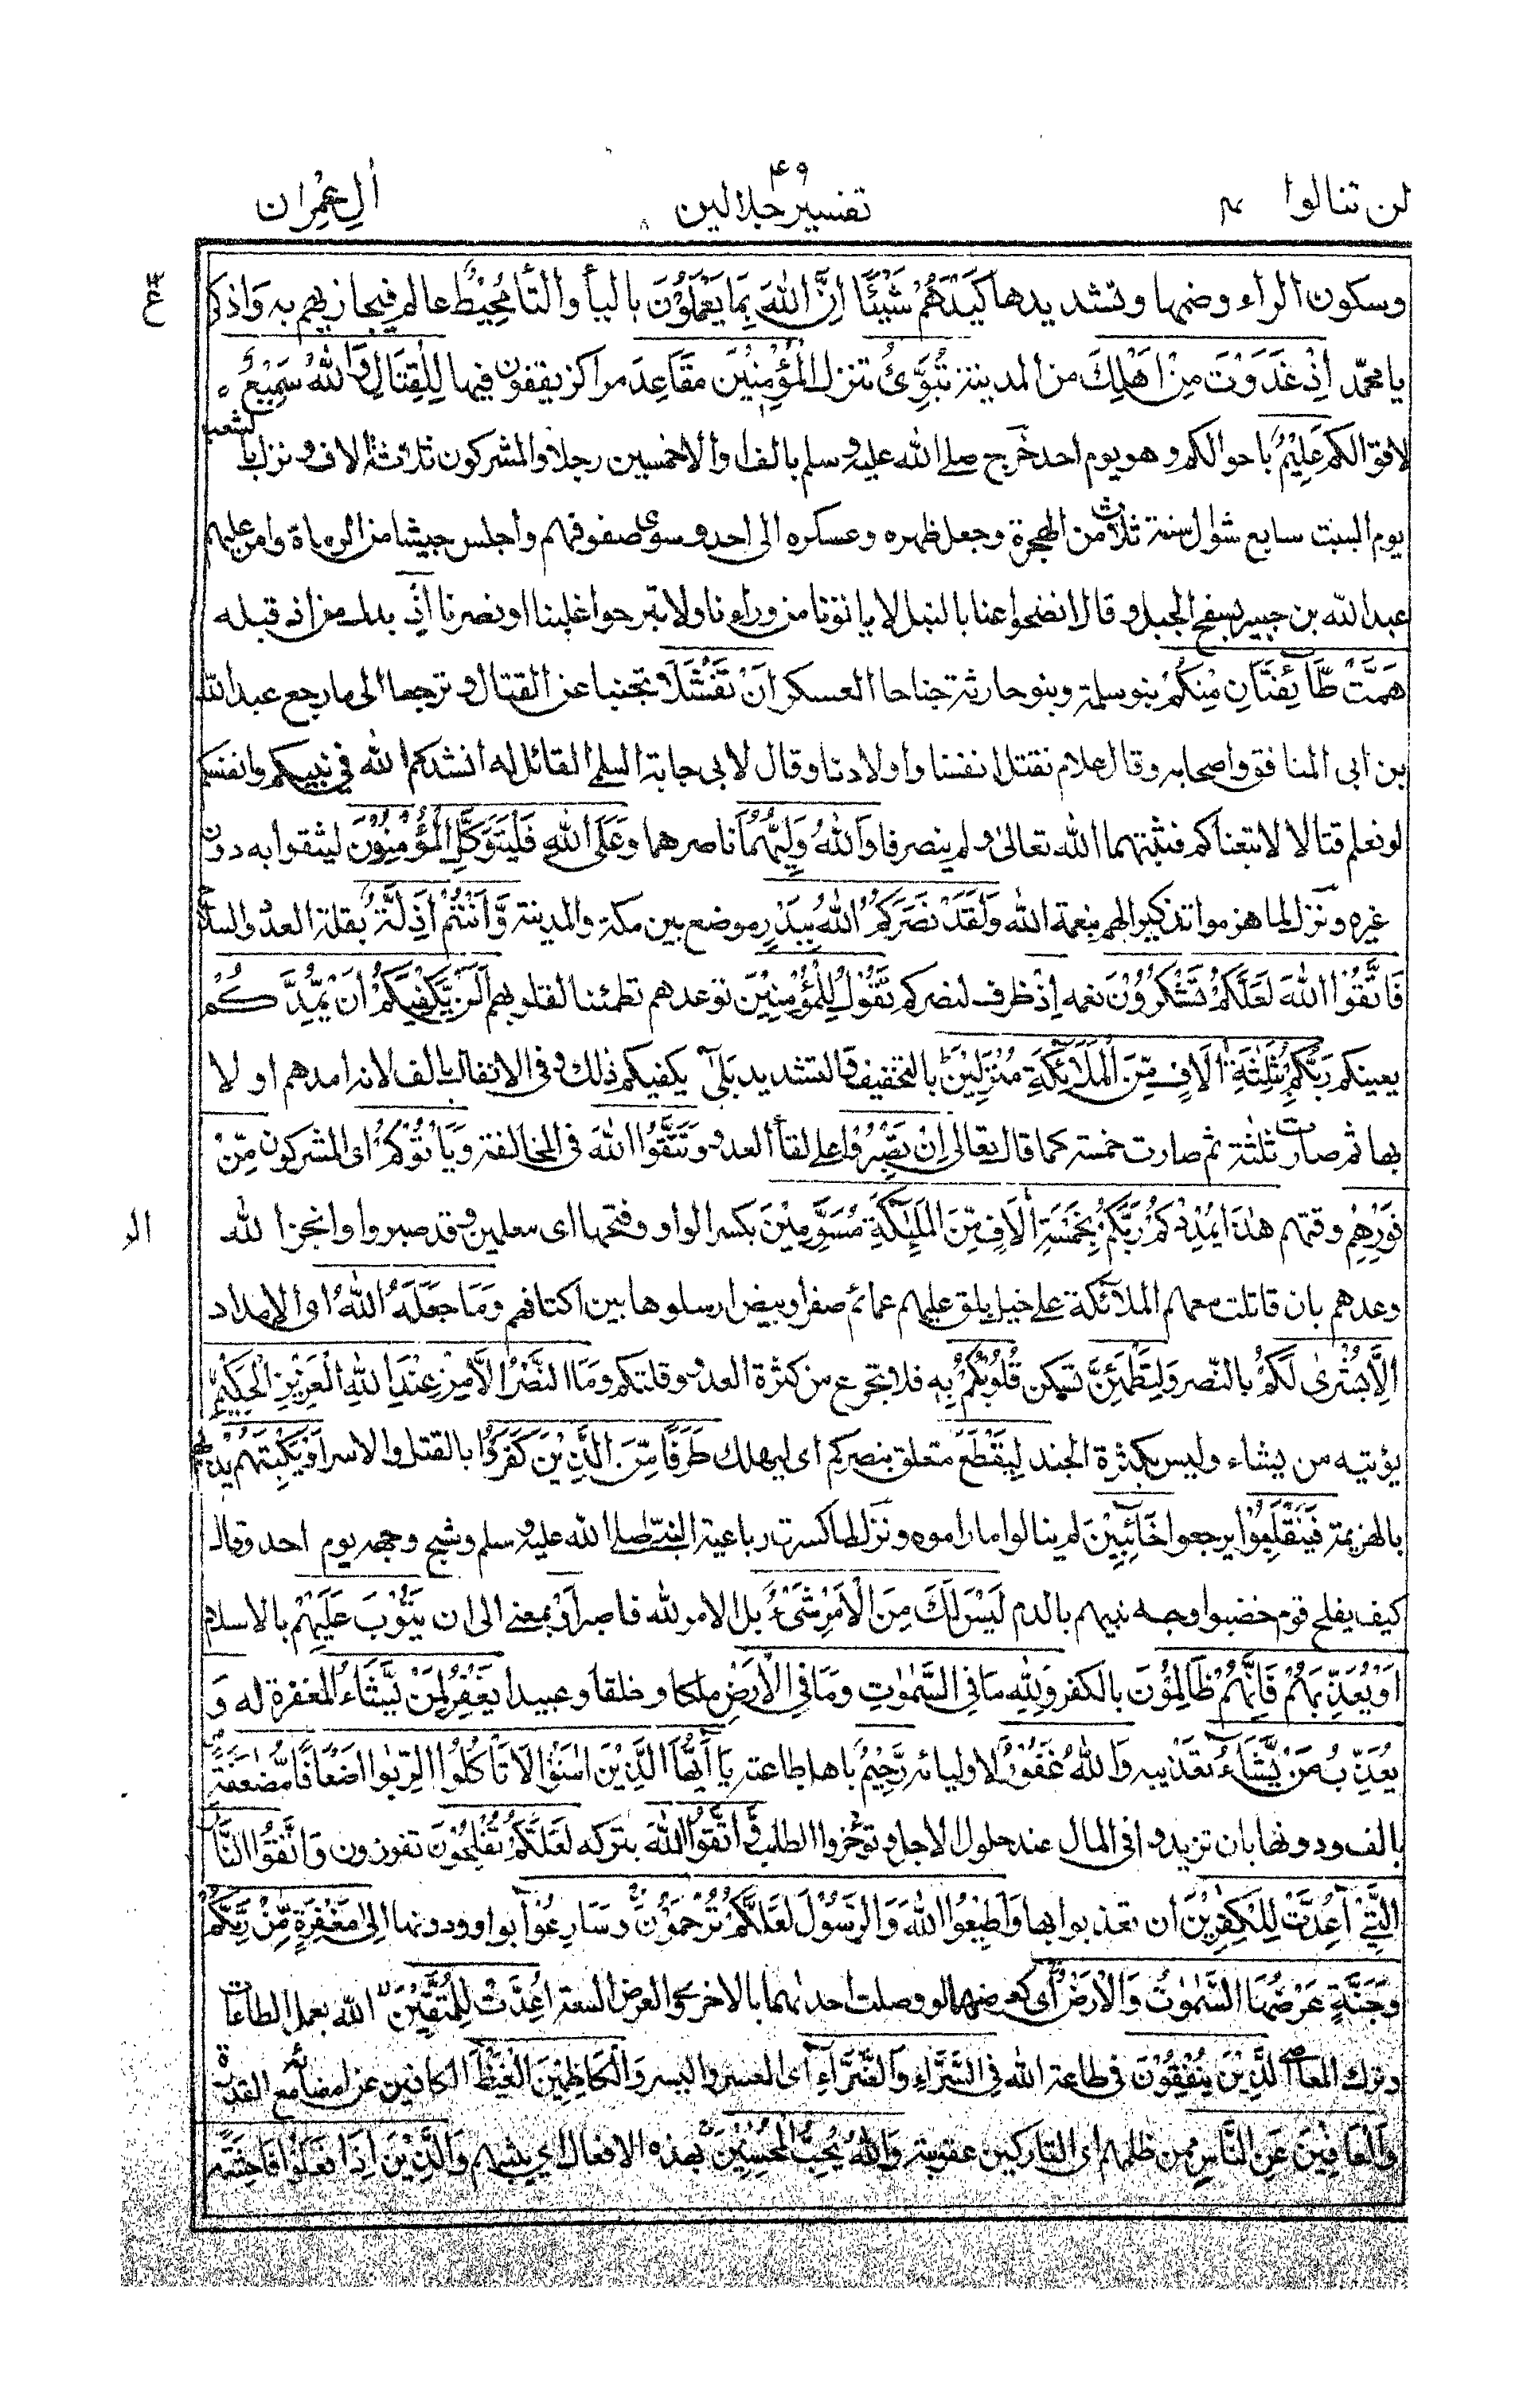 لن تنالوا ۴
۴۹
تفسير جلالين
اٰل عِمْرٰان
وسكون الراء وضمها وتشديدها كَيْدُهُمْ شَيْئًا اِنَّ اللّٰهَ بِمَا يَعْمَلُوْنَ بالياٰ والتاٰ مُحِيْطٌ عالم فيجازيهم به وَاذكر
يا محمّد اِذْ غَدَوْتَ مِنْ اَهْلِكَ من المدينة تُبَوِّئُ تنزل الْمُؤْمِنِيْنَ مَقَاعِدَ مراكز يقفون فيها لِلْقِتَالِ وَاللّٰهُ سَمِيْعٌ
لاقوالكم عَلِيْمٌ باحوالكم وهو يوم احد خرج صلے الله عليه وسلم بالف او الا خمسين رجلا والمشركون ثلاثة اٰلاف ونزل بالشعب
يوم السبت سابع شوال سنة ثلاث من الهجرة وجعل ظهره وعسكره الى احد وسوى صفوفهم وأجلس جيشا من الرماة وامر عليهم
عبد الله بن جبير بسفح الجبل وقال انضحوا عنا بالنبل لا ياتونا من وراءنا ولا تبرحوا غلبنا او نصرنا اِذْ بدل من اذ قبله
هَمَّتْ طَّآئِفَتَانِ مِنْكُمْ بنو سلمة وبنو حارثة جناحا العسكر اَنْ تَفْشَلَا تجبنا عن القتال وترجعا الى ما رجع عبد الله
بن ابى المنافق واصحابه وقال علام نقتل انفسنا واولادنا وقال لابى جابة السلمے القائل له انشدكم الله فى نبيكم وانفسكم
لو نعلم قتالا لا تبعناكم فثبتهما الله تعالىٰ ولم ينصرفا وَاللّٰهُ وَلِيُّهُمَا ناصرهما وَعَلَى اللّٰهِ فَلْيَتَوَكَّلِ الْمُؤْمِنُوْنَ ليثقوا به دون
غيره ونزل لما هزموا تذكيرا لهم بنعمة الله وَلَقَدْ نَصَرَكُمُ اللّٰهُ بِبَدْرٍ موضع بين مكة والمدينة وَّاَنْتُمْ اَذِلَّةٌ بقلة العدد والسلاح
فَاتَّقُوا اللّٰهَ لَعَلَّكُمْ تَشْكُرُوْنَ نعمه اِذْ ظرف لنصركم تَقُوْلُ لِلْمُؤْمِنِيْنَ توعدهم تطمئنا لقلوبهم اَلَنْ يَّكْفِيَكُمْ اَنْ يُّمِدَّكُمْ
يعينكم رَبُّكُمْ بِثَلٰثَةِ اٰلَافٍ مِّنَ الْمَلَآئِكَةِ مُنْزَلِيْنَ بالتخفيف والتشديد بَلٰٓى يكفيكم ذلك وفى الانفال بالف لانه امدهم اولا
بها ثم صارت ثلثة ثم صارت خمسة كما قال تعالى اِنْ تَصْبِرُوْا على لقاٰ العدو وَتَتَّقُوا اللّٰهَ فى المخالفة وَيَاْتُوْكُمْ اى المشركون مِّنْ
فَوْرِهِمْ وقتهم هٰذَا يُمْدِدْكُمْ رَبُّكُمْ بِخَمْسَةِ اٰلَافٍ مِّنَ الْمَلٰٓئِكَةِ مُسَوِّمِيْنَ بكسر الواو وفتحها اى معلمين وقد صبروا وانجز الله
وعدهم بان قاتلت معهم الملآئكة على خيل بلق عليهم عمائم صفر او بيض ارسلوها بين اكتافهم وَمَا جَعَلَهُ اللّٰهُ اى الامداد
اِلَّا بُشْرٰى لَكُمْ بالنصر وَلِتَطْمَئِنَّ تسكن قُلُوْبُكُمْ بِهٖ فلا تجزع من كثرة العدو وقلتكم وَمَا النَّصْرُ اِلَّا مِنْ عِنْدِ اللّٰهِ الْعَزِيْزِ الْحَكِيْمِ
يؤتيه من يشاء وليس بكثرة الجند لِيَقْطَعَ متعلق بنصركم اى ليهلك طَرَفًا مِّنَ الَّذِيْنَ كَفَرُوْا بالقتل والاسر اَوْ يَكْبِتَهُمْ يذلهم
بالهزيمة فَيَنْقَلِبُوْا يرجعوا خَآئِبِيْنَ لم ينالوا ما راموه ونزل لما كسرت رباعية النبے صلے الله عليه وسلم وشج وجهه يوم احد وقال
كيف يفلح قوم خضبوا وجه نبيهم بالدم لَيْسَ لَكَ مِنَ الْاَمْرِ شَىْءٌ بل الامر لله فاصبر اَوْ بمعنے الى ان يَتُوْبَ عَلَيْهِمْ بالاسلام
اَوْ يُعَذِّبَهُمْ فَاِنَّهُمْ ظَالِمُوْنَ بالكفر وَلِلّٰهِ مَا فِى السَّمٰوٰتِ وَمَا فِى الْاَرْضِ ملكا وخلقا وعبيدا يَغْفِرُ لِمَنْ يَّشَآءُ المغفرة له وَ
يُعَذِّبُ مَنْ يَّشَآءُ تعذيبه وَاللّٰهُ غَفُوْرٌ لاوليائه رَّحِيْمٌ باهل طاعته يَآ اَيُّهَا الَّذِيْنَ اٰمَنُوْا لَا تَاْكُلُوا الرِّبٰوا اَضْعَافًا مُّضٰعَفَةً
بالف ودونها بان تزيدوا فى المال عند حلول الاجل وتؤخروا الطلب وَاتَّقُوا اللّٰهَ بتركه لَعَلَّكُمْ تُفْلِحُوْنَ تفوزون وَاتَّقُوا النَّارَ
الَّتِىْٓ اُعِدَّتْ لِلْكٰفِرِيْنَ ان تعذبوا بها وَاَطِيْعُوا اللّٰهَ وَالرَّسُوْلَ لَعَلَّكُمْ تُرْحَمُوْنَ وَسَارِعُوْا بواو ودونها اِلٰى مَغْفِرَةٍ مِّنْ رَّبِّكُمْ
وَجَنَّةٍ عَرْضُهَا السَّمٰوٰتُ وَالْاَرْضُ اى كعرضهما لو وصلت احدٰهما بالاخرى والعرض السعة اُعِدَّتْ لِلْمُتَّقِيْنَ الله بعمل الطاعات
وترك المعاصے الَّذِيْنَ يُنْفِقُوْنَ فى طاعة الله فِى السَّرَّآءِ وَالضَّرَّآءِ اى العسر واليسر وَالْكَاظِمِيْنَ الْغَيْظَ الكافين عن امضائه مع القدرة
وَالْعَافِيْنَ عَنِ النَّاسِ ممن ظلمهم اى التاركين عقوبته وَاللّٰهُ يُحِبُّ الْمُحْسِنِيْنَ بهذه الافعال اى يثيبهم وَالَّذِيْنَ اِذَا فَعَلُوْا فَاحِشَةً